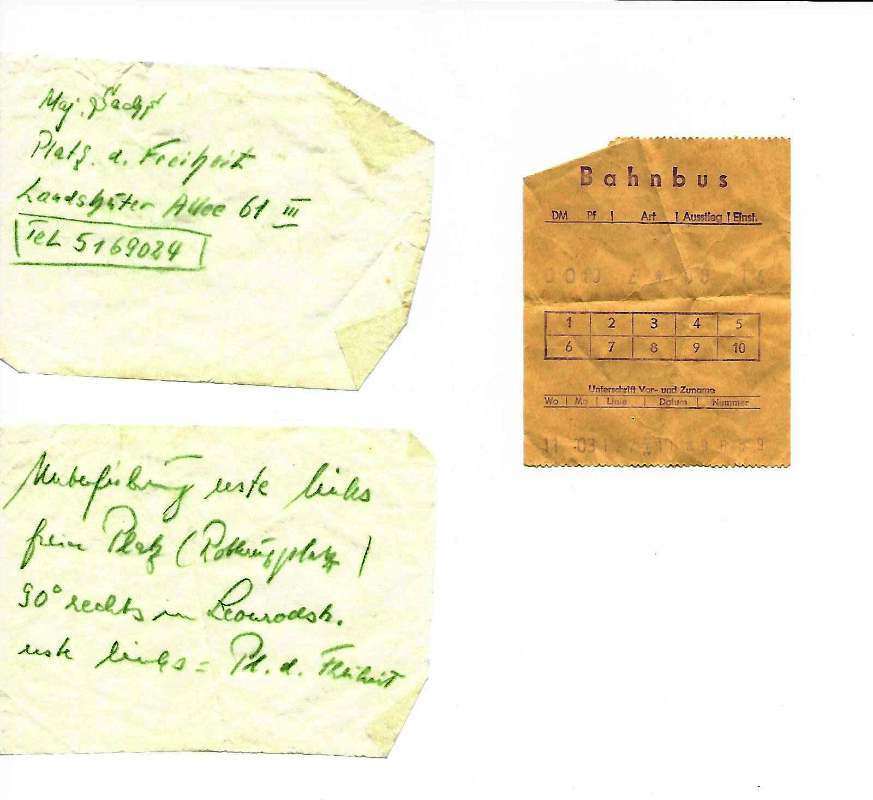 Maj.
Platz. d. Freiheit
Landshuter Allee 61 III
Tel 5169024
Unterführung erste links
freier Platz (Rotkreuzplatz)
90° rechts in Leonrodstr.
erste links = Pl. d. Freiheit
Bahnbus
DM Pf Art Ausstieg Einst.
1 2 3 4 5
6 7 8 9 10
Unterschrift Vor- und Zuname
Wo Mo Linie Datum Nummer